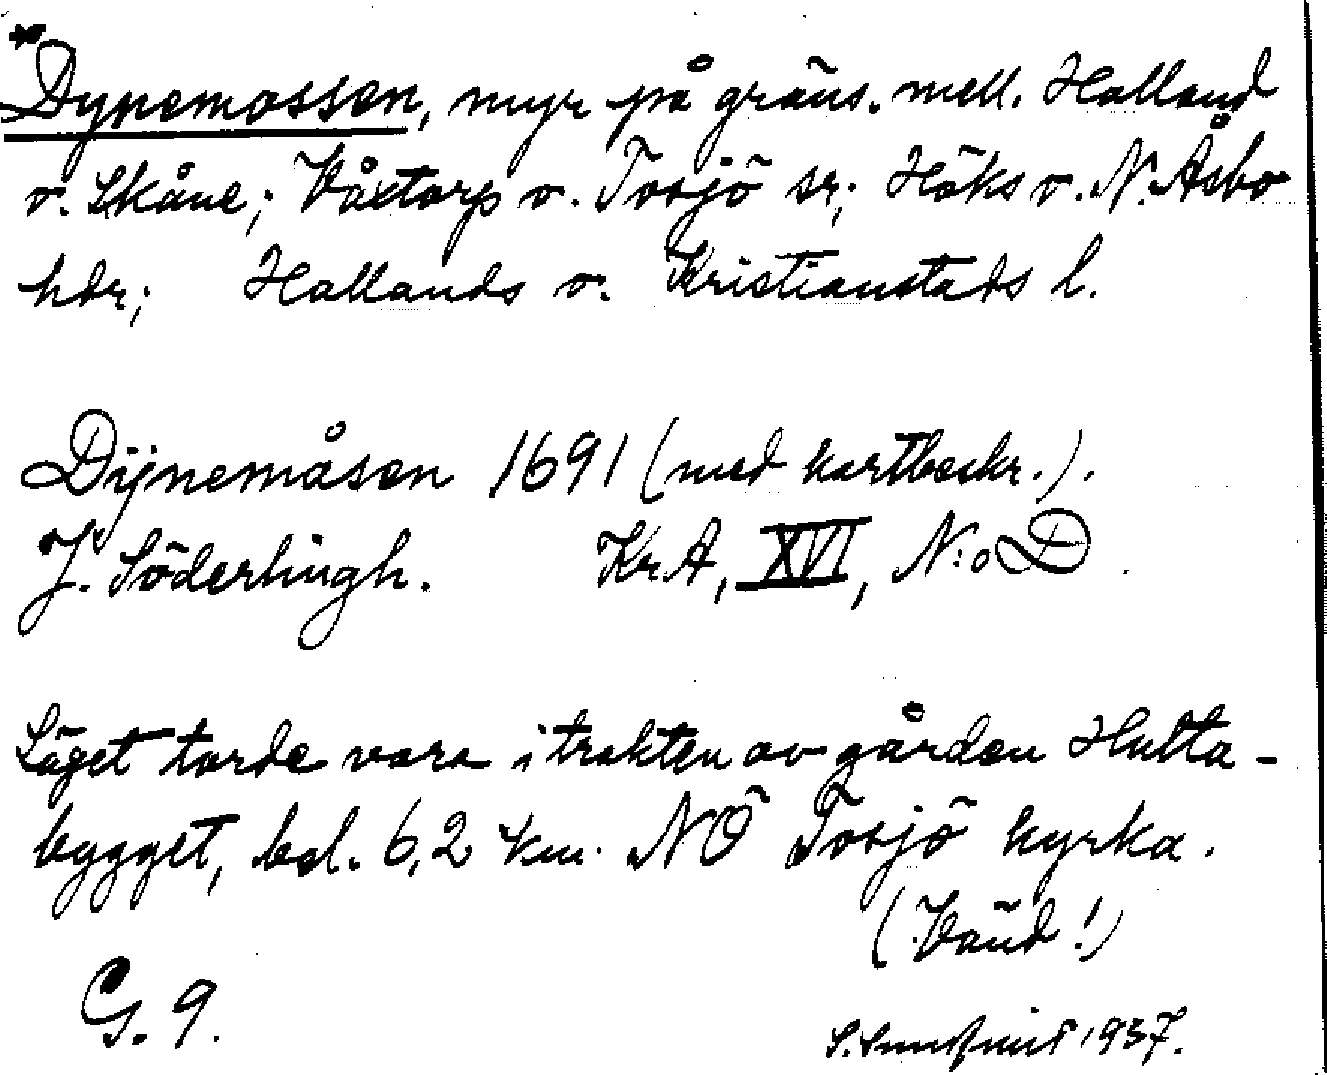 *Dynemossen, myr på gräns. mell. Halland
o. Skåne; Våxtorp o. Tosjö sr; Höks o. N. Åsbo
hdr; Hallands o. Kristianstads l.
Dÿnemåsen 1691 (med kartbeskr.).
J. Söderlingh. KrA, XVI, N:o D.
Läget torde vara i trakten av gården Hulta-
bygget, bel. 6,2 km. NÖ Tosjö kyrka.
(Vänd!)
G. 9.
S. 1937.